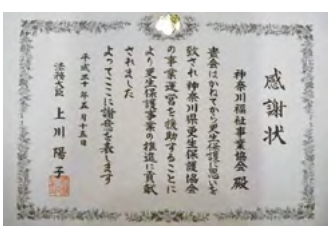 感謝状
神奈川福祉事業協会 殿
貴会はかねてから更生保護に思いを
致され神奈川県更生保護協会
の事業運営を援助することに
より更生保護事業の推進に貢献
されました
よってここに謝意を表します
平成三十年五月十五日
法務大臣 上川陽子